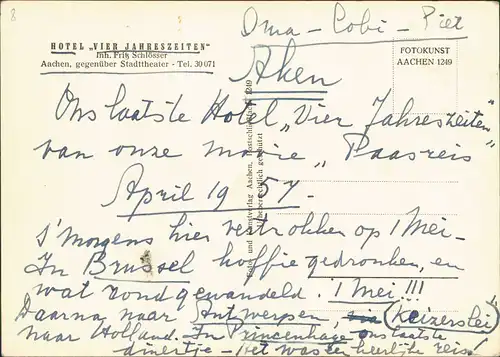 8
Oma - Cobi - Piet
HOTEL „VIER JAHRESZEITEN"
Inh. Fritz Schlösser
Aachen, gegenüber Stadttheater - Tel. 30 071
FOTOKUNST
AACHEN 1249
Aken
Ons laatste Hotel „Vier Jahreszeiten"
van onze mooie „Paasreis
April 1957.-
S'morgens hier vertrokken op 1 Mei-
In Brussel koffie gedronken, en
wat rond gewandeld. 1 Mei!!!
Daarna naar Antwerpen, (Keizerslei)
naar Holland. In Princenhage ons laatste
dinertje! - Het was een heerlijke reis!